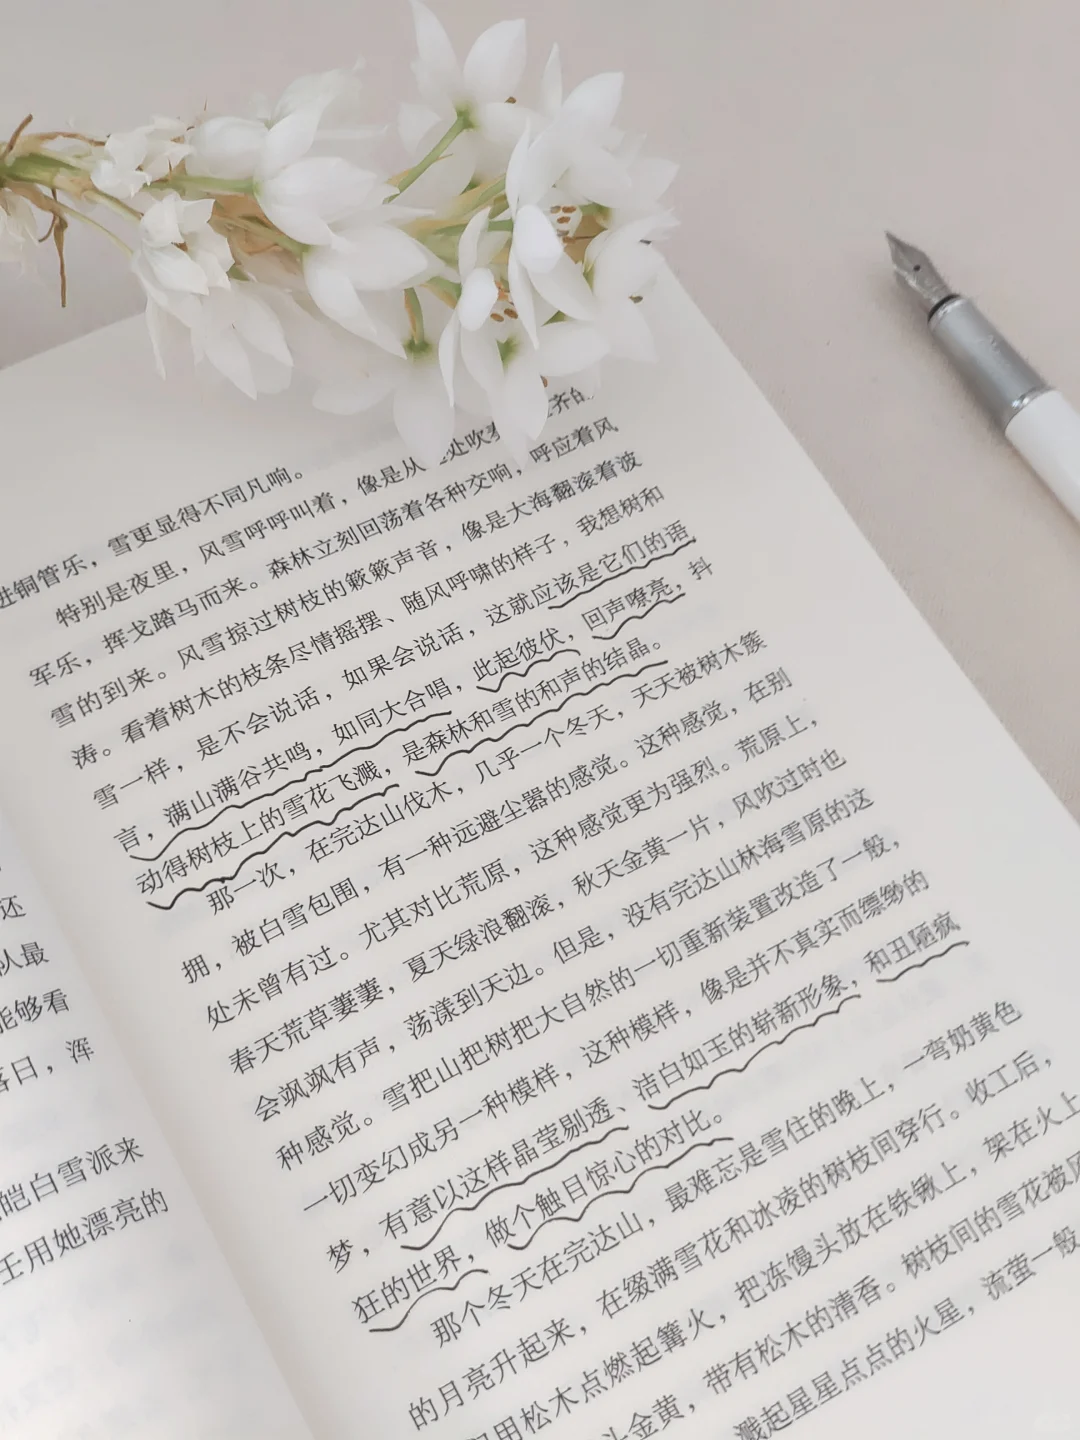 还
队最
能够看
落日，浑
皑白雪派来
用她漂亮的
进铜管乐，雪更显得不同凡响。
特别是夜里，风雪呼呼叫着，像是从处吹齐的
军乐，挥戈踏马而来。森林立刻回荡着各种交响，呼应着风
雪的到来。风雪掠过树枝的簌簌声音，像是大海翻滚着波
涛。看着树木的枝条尽情摇摆、随风呼啸的样子，我想树和
雪一样，是不会说话，如果会说话，这就应该是它们的语
言，满山满谷共鸣，如同大合唱，此起彼伏，回声嘹亮，抖
动得树枝上的雪花飞溅，是森林和雪的和声的结晶。
那一次，在完达山伐木，几乎一个冬天，天天被树木簇
拥，被白雪包围，有一种远避尘嚣的感觉。这种感觉，在别
处未曾有过。尤其对比荒原，这种感觉更为强烈。荒原上，
春天荒草萋萋，夏天绿浪翻滚，秋天金黄一片，风吹过时也
会飒飒有声，荡漾到天边。但是，没有完达山林海雪原的这
种感觉。雪把山把树把大自然的一切重新装置改造了一般，
一切变幻成另一种模样，这种模样，像是并不真实而缥缈的
梦，有意以这样晶莹剔透、洁白如玉的崭新形象，和丑陋疯
狂的世界，做个触目惊心的对比。
那个冬天在完达山，最难忘是雪住的晚上，一弯奶黄色
的月亮升起来，在缀满雪花和冰凌的树枝间穿行。收工后，
用松木点燃起篝火，把冻馒头放在铁锹上，架在火上
头金黄，带有松木的清香。树枝间的雪花被风
溅起星星点点的火星，流萤一般